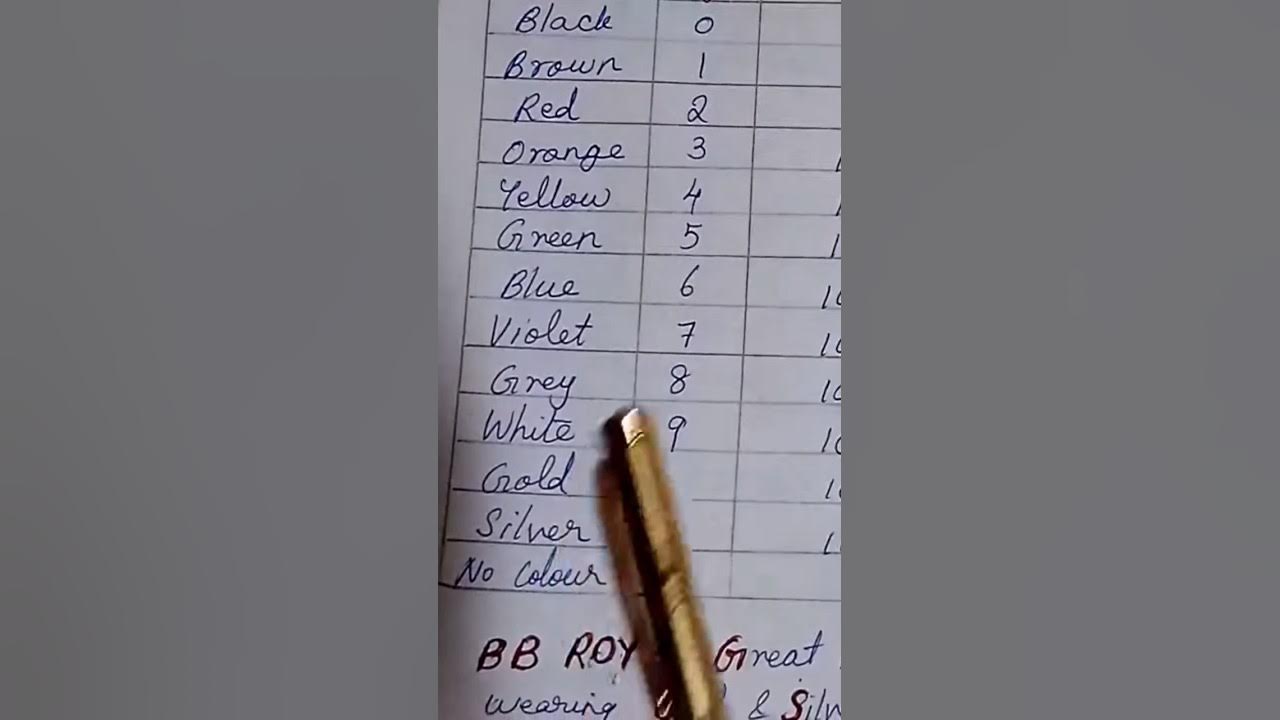 Black 0
Brown 1
Red 2
Orange 3
Yellow 4
Green 5
Blue 6
Violet 7
Grey 8
White 9
Gold
Silver
No Colour
BB ROY Great
wearing & Silv